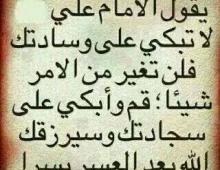 يقول الامام علي
لا تبكي على وسادتك
فلن تغير من الامر
شيئا ؛ قم وأبكي على
سجادتك وسيرزقك
الله بعد العسر يسرا